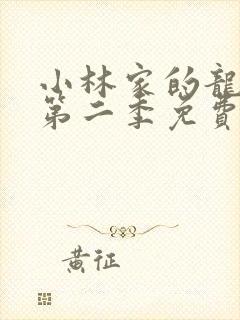 小林家的龍
第二季免費
黃征